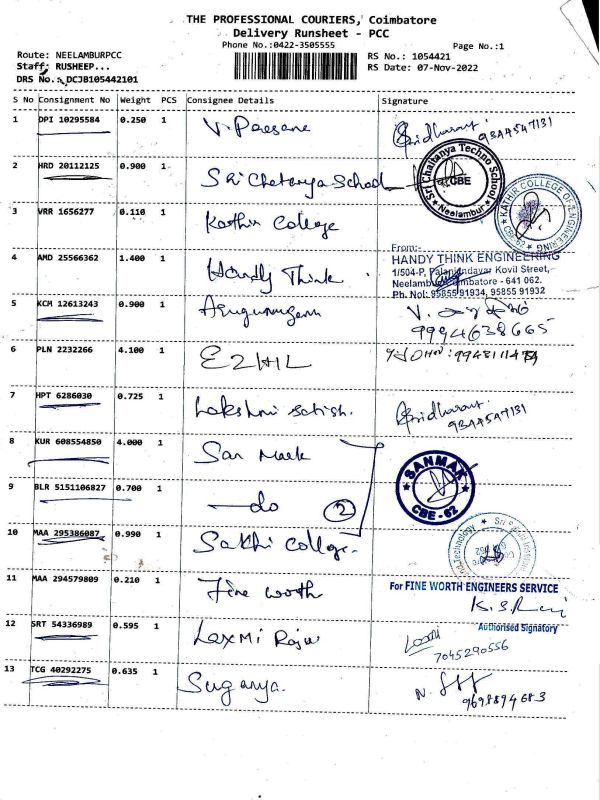 THE PROFESSIONAL COURIERS, Coimbatore
Delivery Runsheet - PCC
Phone No.:0422-3505555
Page No.:1
Route: NEELAMBURPCC
RS No.: 1054421
Staff: RUSHEEP...
RS Date: 07-Nov-2022
DRS No.: DCJB105442101
S No Consignment No Weight PCS Consignee Details Signature
1 DPI 10295584 0.250 1 Sridharan. 9344547131
2 HRD 20112125 0.900 1 Sri Chetanya School Sri Chaitanya Techno School CBE Neelambur
3 VRR 1656277 0.110 1 Kathir College KATHIR COLLEGE OF ENGINEERING CBE-62
4 AMD 25566362 1.400 1 Handy Think
From:-
HANDY THINK ENGINEERING
1/504-P, Palanindavar Kovil Street,
Neelambur Coimbatore - 641 062.
Ph. Nol: 95855 91934, 95855 91932
5 KCM 12613243 0.900 1 9994638665
6 PLN 2232266 4.100 1 EZHIL
7 HPT 6286030 0.725 1 Lakshmi Satish. Sridharan. 9344547131
8 KUR 608554850 4.000 1 San Mark SANMAK CBE-62
9 BLR 5151106827 0.700 1 —do 2
10 MAA 295386087 0.990 1 Sakthi College.
11 MAA 294579809 0.210 1 Fine worth
For FINE WORTH ENGINEERS SERVICE
Authorised Signatory
12 SRT 54336989 0.595 1 Laxmi Raja 7045290556
13 TCG 40292275 0.635 1 Suganya. 9698894683